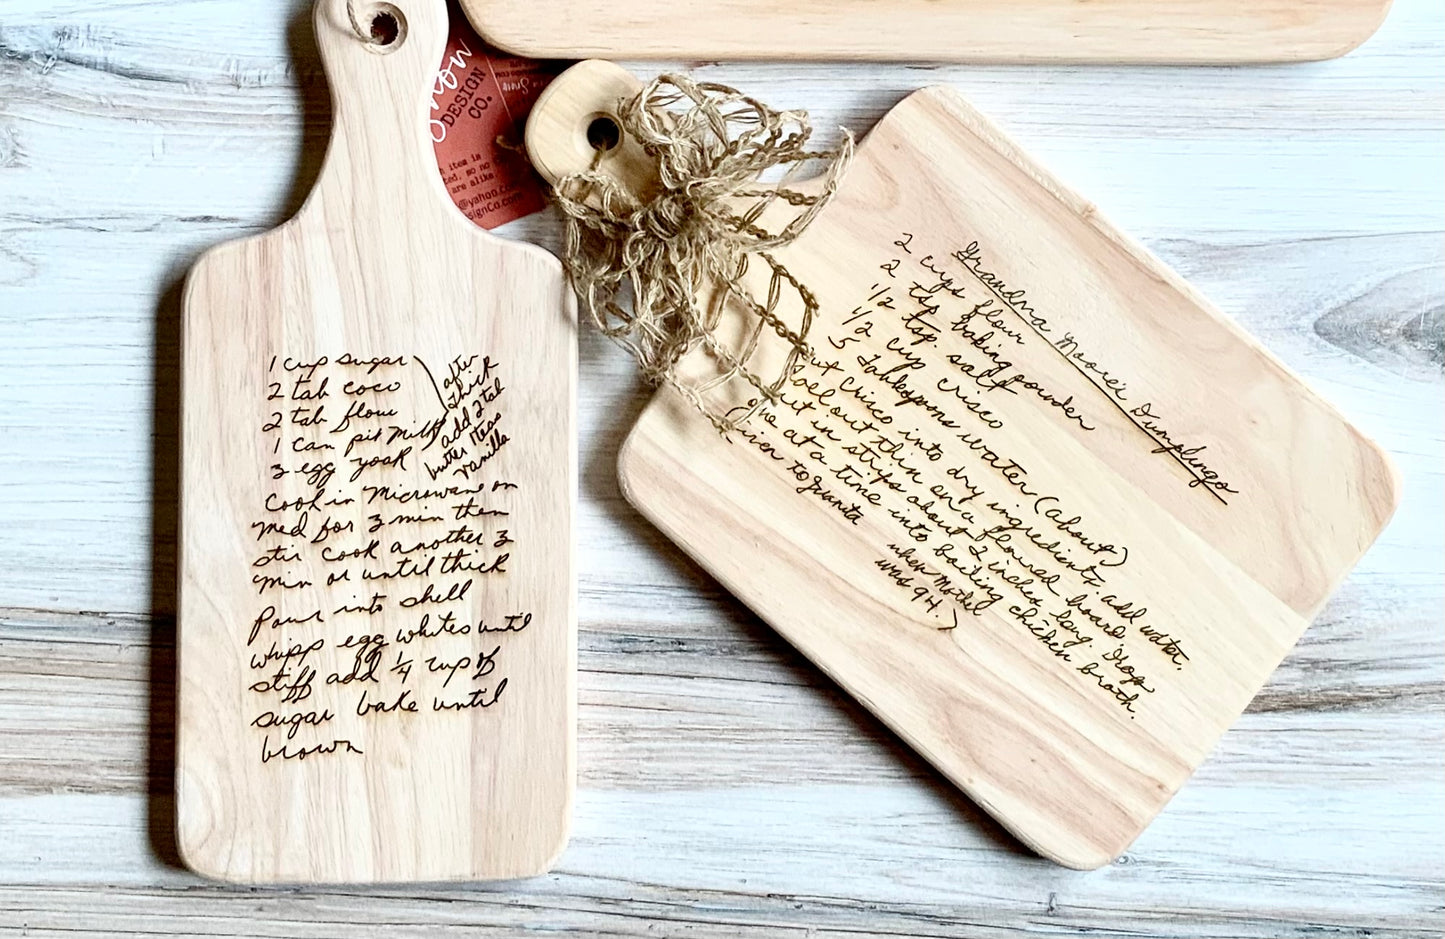 1 cup sugar
2 tab coco
2 tab flour
1 can pit milk
3 egg yoak
after
thick
add 2 tab
butter 1 teas
vanilla
Cook in Microwave on
Med for 3 min then
stir cook another 3
min or until thick
Pour into shell
whipp egg whites until
stiff add 1/4 cup of
sugar bake until
brown
now
DESIGN
CO.
item is
ted, so no
are alike
@yahoo.c
signCo.com
Grandma Moore's Dumplings
2 cups flour
2 tsp baking powder
1/2 tsp. salt
1/2 cup crisco
5 Tablespoons water (about)
cut Crisco into dry ingredients. add water.
Roll out thin on a floured board.
cut in strips about 2 inches long. Drop
one at a time into boiling chicken broth.
Given to Juanita
when Mother
was 94.)